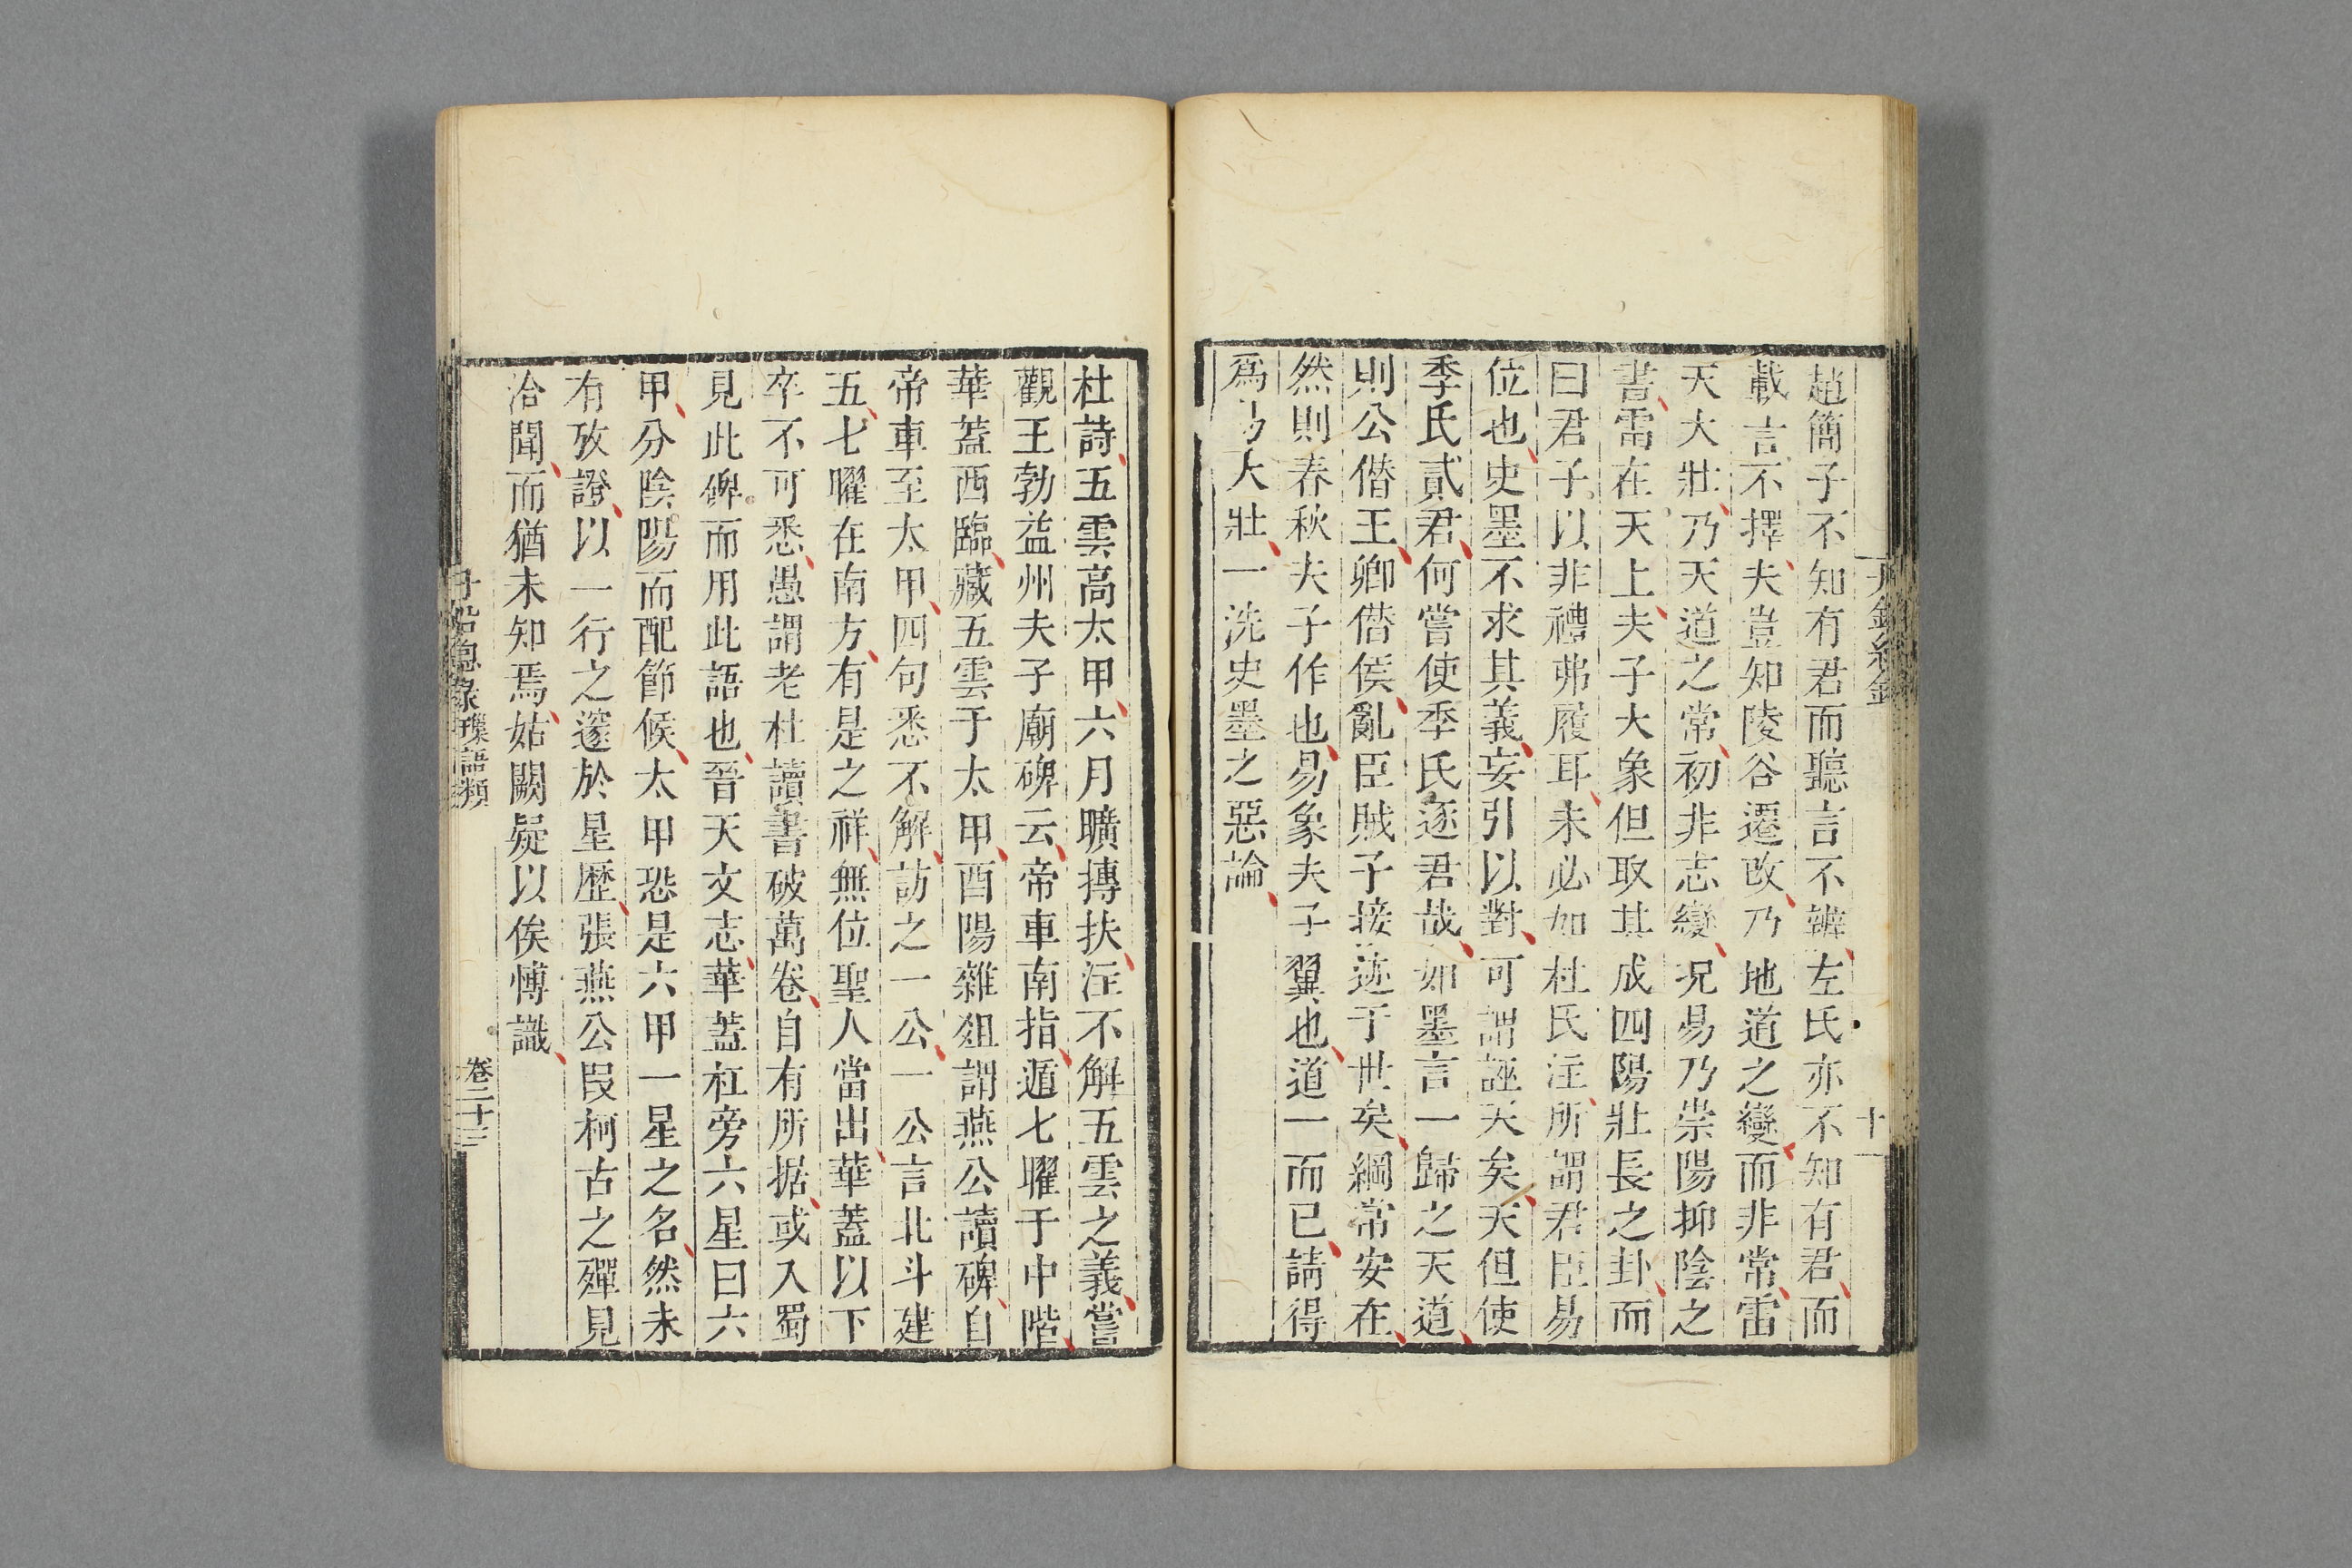 趙簡子不知有君而聽言不辨左氏亦不知有君而
載言不擇夫豈知陵谷遷改乃地道之變而非常雷
天大壯乃天道之常初非志變況易乃崇陽抑陰之
書雷在天上夫子大象但取其成四陽壯長之卦而
曰君子以非禮弗履耳未必如杜氏注所謂君臣易
位也史墨不求其義妄引以對可謂誣天矣天但使
季氏貳君何嘗使季氏逐君哉如墨言一歸之天道
則公僭王卿僭侯亂臣賊子接迹于世矣綱常安在
然則春秋夫子作也易象夫子翼也道一而已請得
爲易大壯一洗史墨之惡論
十一
杜詩五雲高太甲六月曠摶扶注不解五雲之義嘗
觀王勃益州夫子廟碑云帝車南指遁七曜于中階
華蓋西臨藏五雲于太甲酉陽雜俎謂燕公讀碑自
帝車至太甲四句悉不解訪之一公一公言北斗建
五七曜在南方有是之祥無位聖人當出華蓋以下
卒不可悉愚謂老杜讀書破萬卷自有所据或入蜀
見此碑而用此語也晉天文志華蓋杠旁六星曰六
甲分陰陽而配節候太甲恐是六甲一星之名然未
有攷證以一行之邃於星歷張燕公叚柯古之殫見
洽聞而猶未知焉姑闕疑以俟博識
丹鉛總錄璅語類 卷二十三